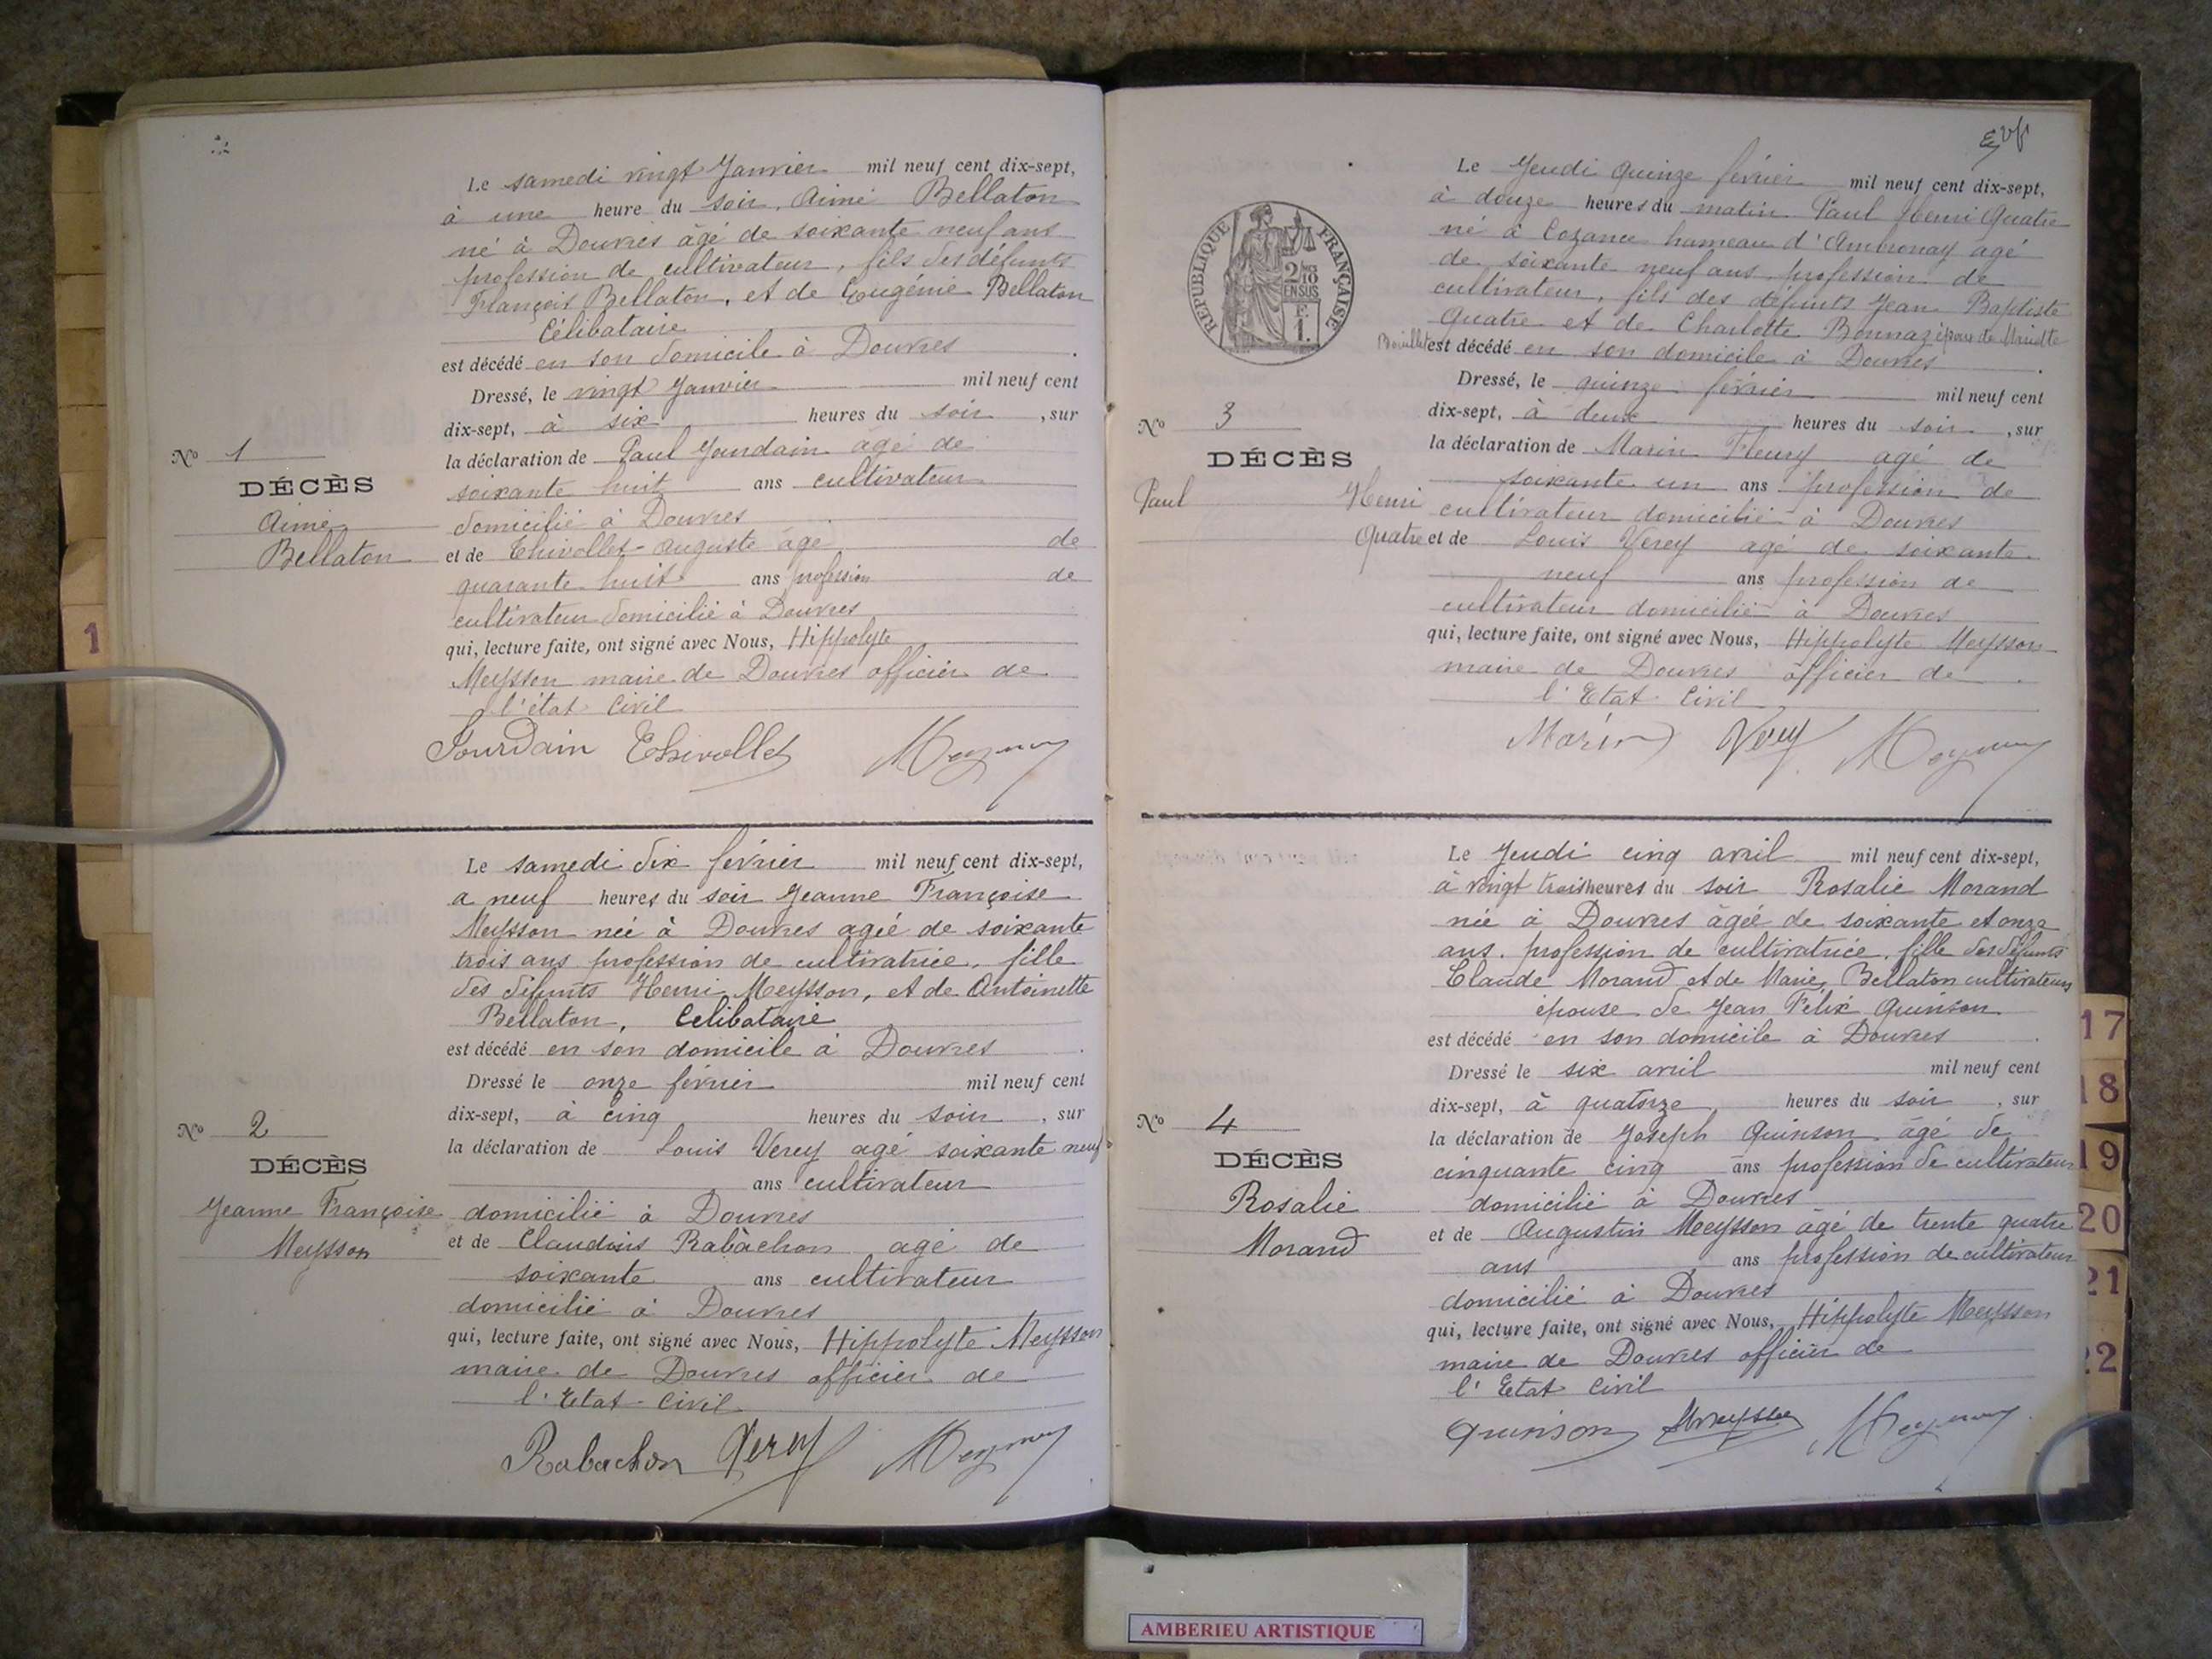 Le samedi vingt Janvier mil neuf cent dix-sept,
à une heure du soir, Aimé Bellaton
né à Douvres âgé de soixante neuf ans
profession de cultivateur, fils des défunts
François Bellaton, et de Eugénie Bellaton
Célibataire
est décédé en son domicile à Douvres
Dressé, le vingt Janvier mil neuf cent
dix-sept, à six heures du soir, sur
la déclaration de Paul Jourdain âgé de
soixante huit ans cultivateur
domicilié à Douvres
et de Thivollet Auguste âgé de
quarante huit ans profession de
cultivateur domicilié à Douvres
qui, lecture faite, ont signé avec Nous, Hippolyte
Meysson maire de Douvres officier de
l'état Civil
Jourdain Thivollet Meysson
No 1
DÉCÈS
Aimé
Bellaton
1
Le samedi dix février mil neuf cent dix-sept,
a neuf heures du soir Jeanne Françoise
Meysson née à Douvres agée de soixante
trois ans profession de cultivatrice, fille
des défunts Henri Meysson, et de Antoinette
Bellaton, Célibataire
est décédé en son domicile à Douvres
Dressé le onze février mil neuf cent
dix-sept, à cinq heures du soir, sur
la déclaration de Louis Verey agé soixante neuf
ans cultivateur
domicilié à Douvres
et de Claudius Rabàchon agé de
soixante ans cultivateur
domicilié à Douvres
qui, lecture faite, ont signé avec Nous, Hippolyte Meysson
maire de Douvres officier de
l'Etat-Civil
Rabachon Verey Meysson
No 2
DÉCÈS
Jeanne Françoise
Meysson
Le Jeudi Quinze février mil neuf cent dix-sept,
à douze heures du matin Paul Henri Quatre
né à Cozance hameau d'Ambronay agé
de soixante neuf ans profession de
cultivateur, fils des défunts Jean Baptiste
Quatre et de Charlotte Bonnaz époux de Mariette
Bouillet est décédé en son domicile à Douvres
Dressé, le quinze février mil neuf cent
dix-sept, à deux heures du soir, sur
la déclaration de Marin Fleury agé de
soixante un ans profession de
cultivateur domicilié à Douvres
et de Louis Verey agé de soixante
neuf ans profession de
cultivateur domicilié à Douvres
qui, lecture faite, ont signé avec Nous, Hippolyte Meysson
maire de Douvres officier de
l'Etat-Civil
Marin Verey Meysson
RÉPUBLIQUE FRANÇAISE
2/10
EN SUS
F.
1.
No 3
DÉCÈS
Paul Henri
Quatre
Le Jeudi cinq avril mil neuf cent dix-sept,
à vingt trois heures du soir Rosalie Morand
née à Douvres âgée de soixante et onze
ans. profession de cultivatrice, fille des défunts
Claude Morand et de Marie, Bellaton cultivateurs
épouse de Jean Félix Quinson
est décédé en son domicile à Douvres
Dressé le six avril mil neuf cent
dix-sept, à quatorze heures du soir, sur
la déclaration de Joseph Quinson âgé de
cinquante cinq ans profession de cultivateur
domicilié à Douvres
et de Augustin Meysson âgé de trente quatre
ans ans profession de cultivateur
domicilié à Douvres
qui, lecture faite, ont signé avec Nous, Hippolyte Meysson
maire de Douvres officier de
l'Etat Civil
Quinson Meysson Meysson
No 4
DÉCÈS
Rosalie
Morand
17
18
19
20
21
22
AMBERIEU ARTISTIQUE